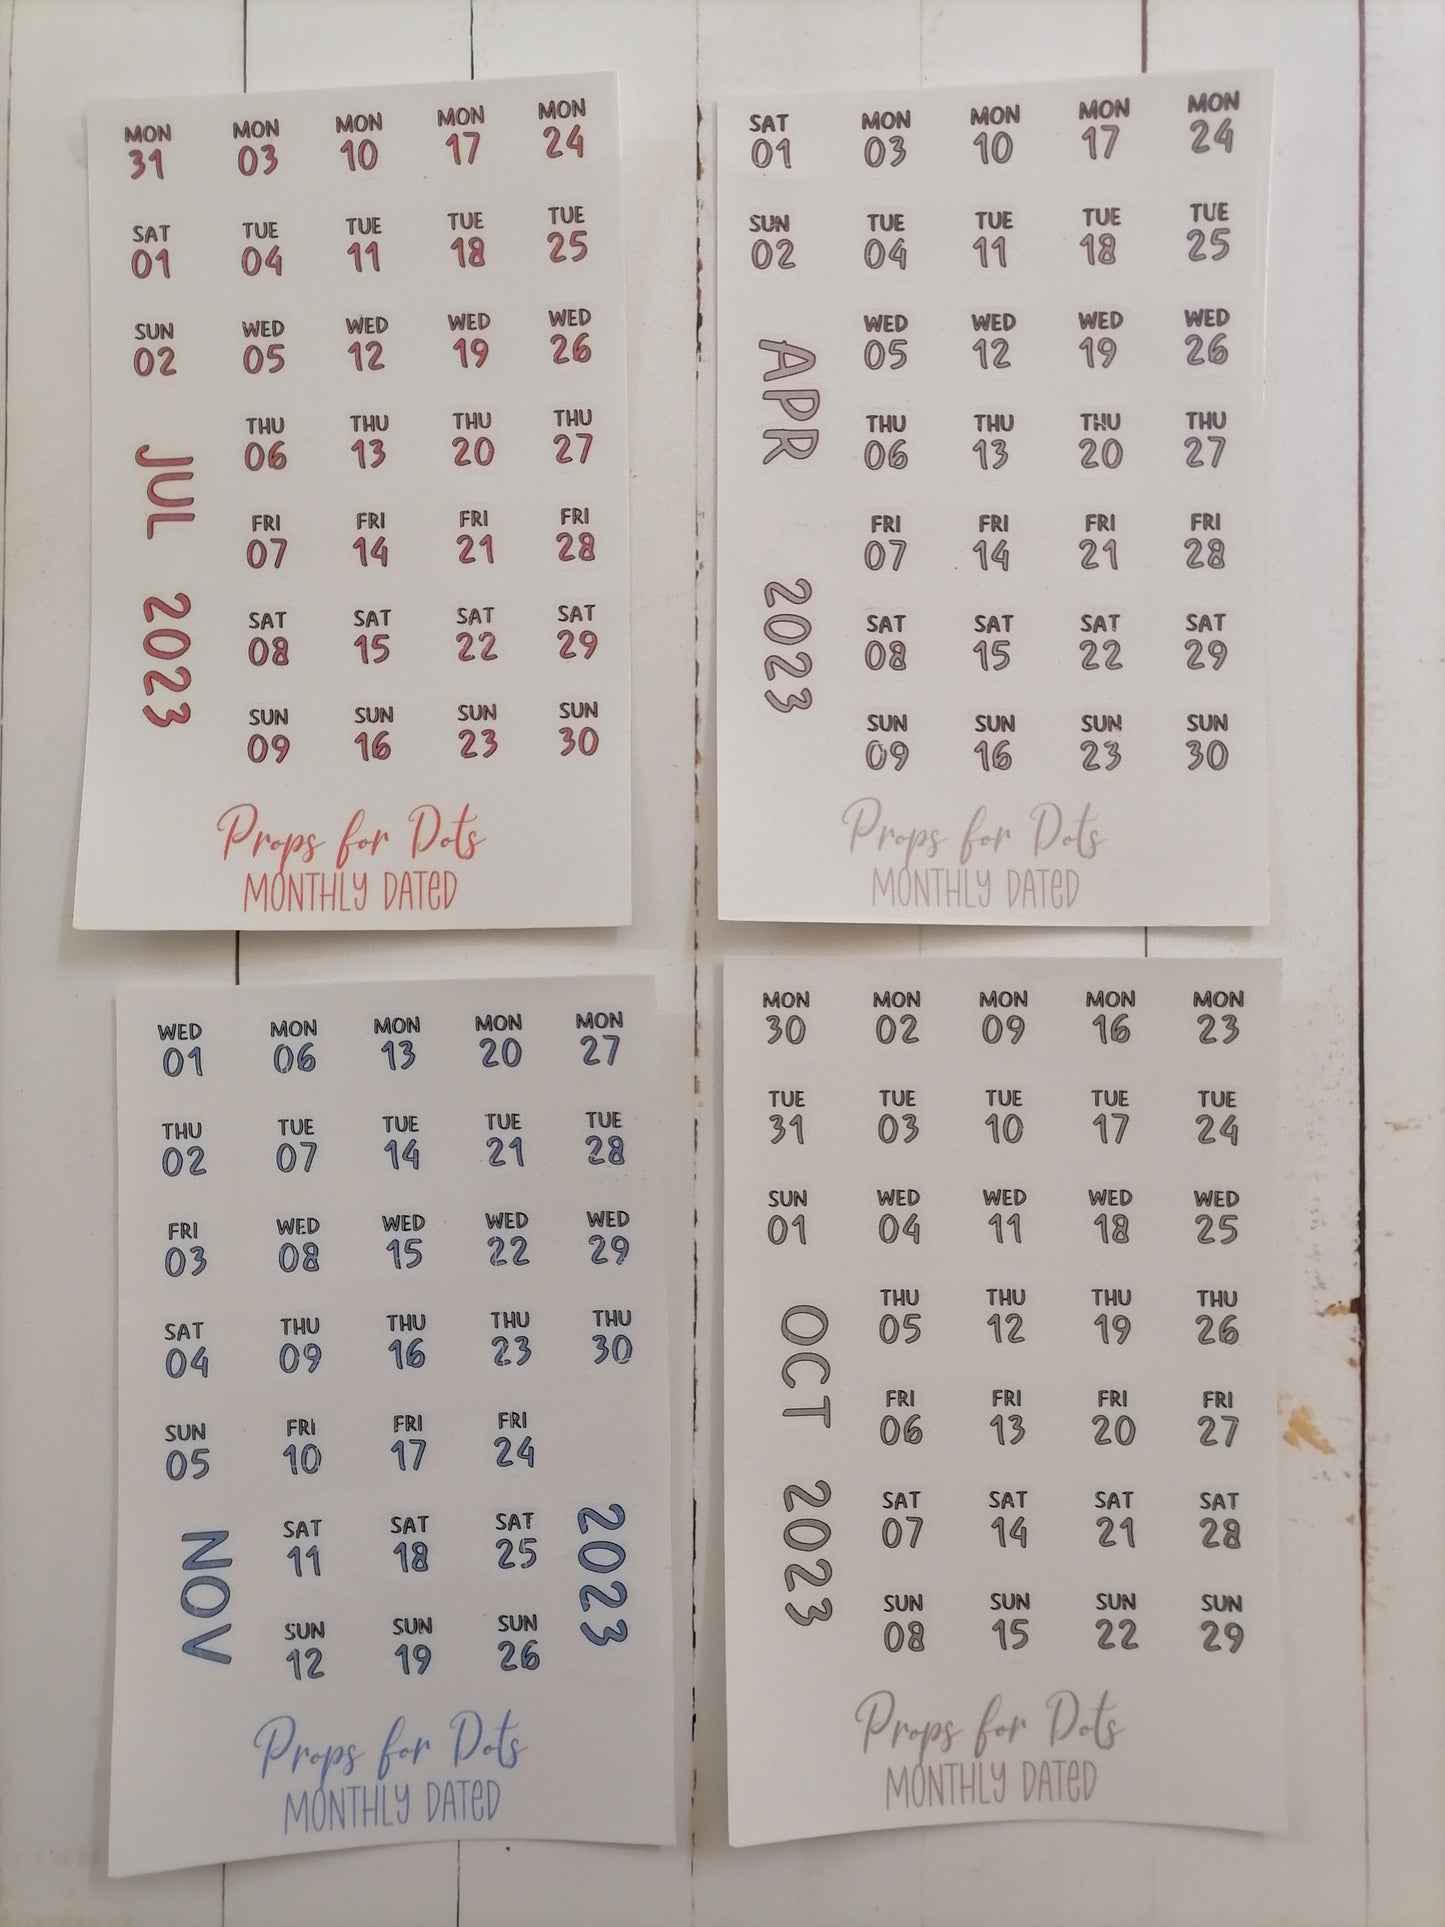 MON MON MON MON MON
31 03 10 17 24
SAT TUE TUE TUE TUE
01 04 11 18 25
SUN WED WED WED WED
02 05 12 19 26
THU THU THU THU
06 13 20 27
FRI FRI FRI FRI
07 14 21 28
SAT SAT SAT SAT
08 15 22 29
SUN SUN SUN SUN
09 16 23 30
JUL 2023
Props for Dots
MONTHLY DATED
SAT MON MON MON MON
01 03 10 17 24
SUN TUE TUE TUE TUE
02 04 11 18 25
WED WED WED WED
05 12 19 26
THU THU THU THU
06 13 20 27
FRI FRI FRI FRI
07 14 21 28
SAT SAT SAT SAT
08 15 22 29
SUN SUN SUN SUN
09 16 23 30
APR 2023
Props for Dots
MONTHLY DATED
WED MON MON MON MON
01 06 13 20 27
THU TUE TUE TUE TUE
02 07 14 21 28
FRI WED WED WED WED
03 08 15 22 29
SAT THU THU THU THU
04 09 16 23 30
SUN FRI FRI FRI
05 10 17 24
SAT SAT SAT
11 18 25
SUN SUN SUN
12 19 26
NOV
2023
Props for Dots
MONTHLY DATED
MON MON MON MON MON
30 02 09 16 23
TUE TUE TUE TUE TUE
31 03 10 17 24
SUN WED WED WED WED
01 04 11 18 25
THU THU THU THU
05 12 19 26
FRI FRI FRI FRI
06 13 20 27
SAT SAT SAT SAT
07 14 21 28
SUN SUN SUN SUN
08 15 22 29
OCT 2023
Props for Dots
MONTHLY DATED